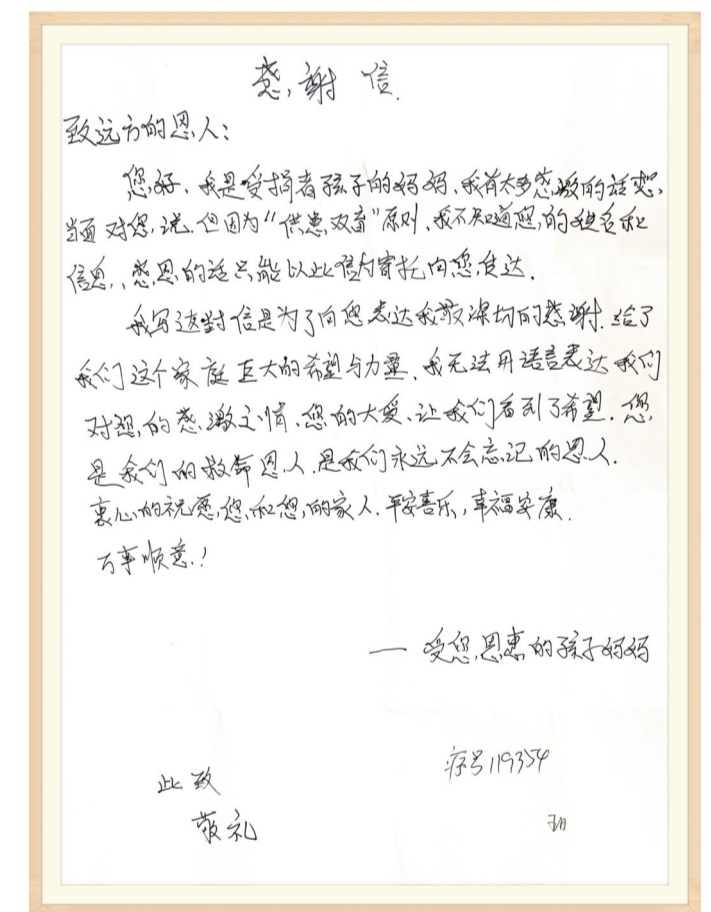 感谢信
致远方的恩人:
您好、我是受捐者孩子的妈妈、我有太多感激的话想、
当面对您说.但因为“供患双盲”原则、我不知道您的姓名和
信息、感恩的话只能以此信为寄托向您传达.
我写这封信是为了向您表达我最深切的感谢.给了
我们这个家庭巨大的希望与力量、我无法用语言表达我们
对您的感激之情、您的大爱、让我们看到了希望.您
是我们的救命恩人.是我们永远不会忘记的恩人.
衷心的祝愿您和您的家人.平安喜乐,幸福安康.
万事顺意!
— 受您恩惠的孩子妈妈
序号119354
此致
敬礼